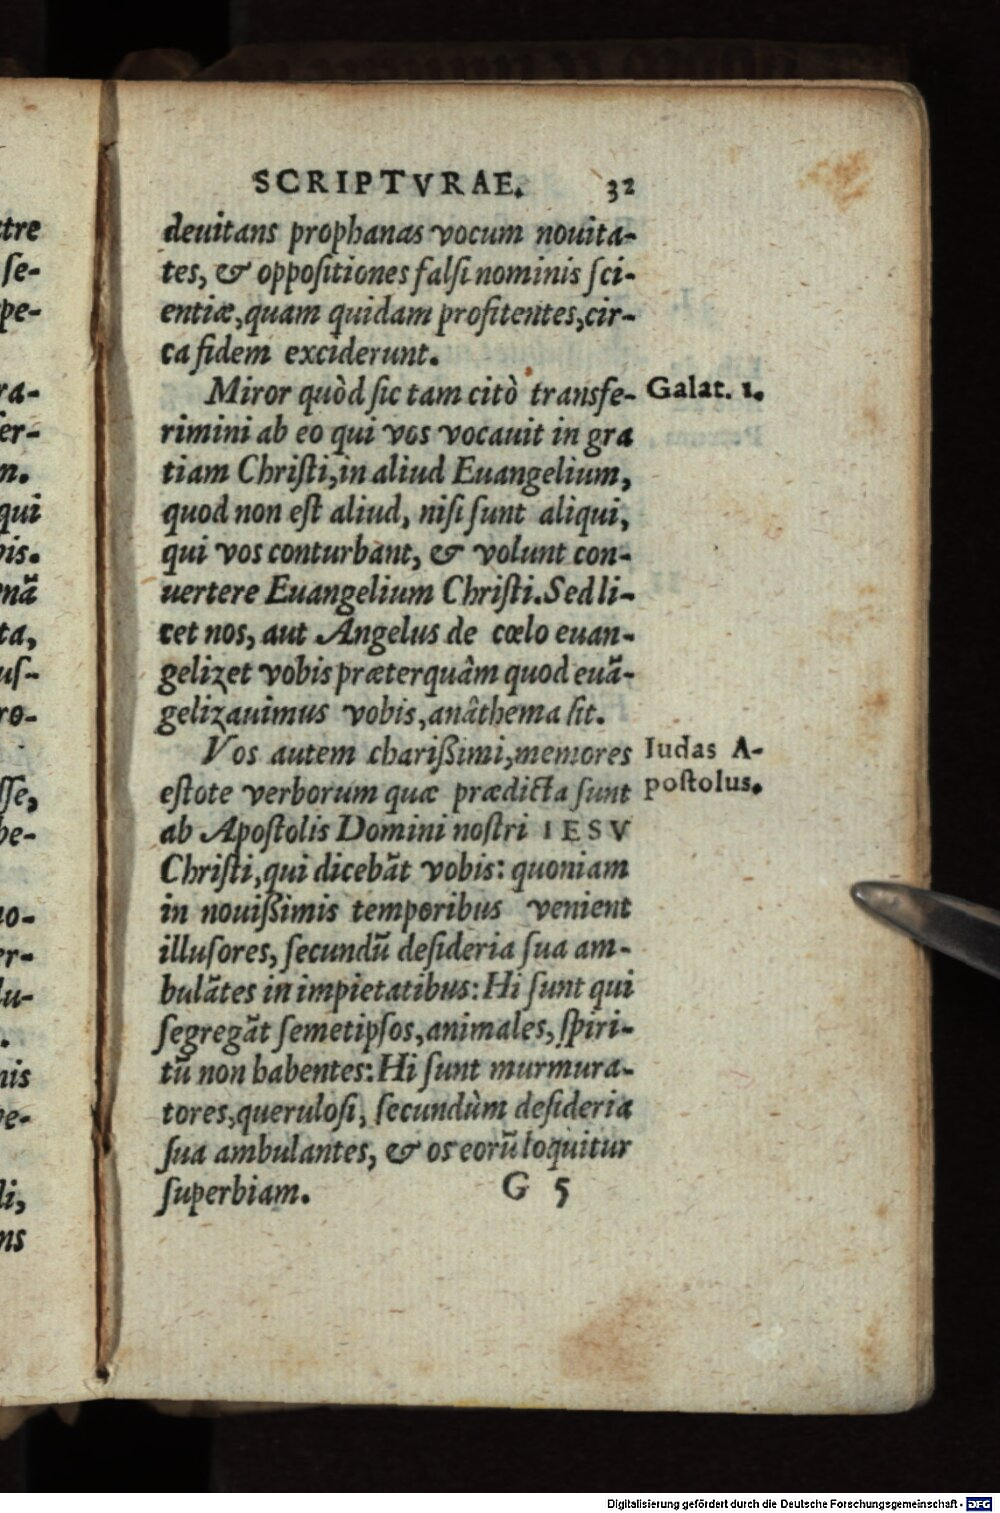 SCRIPTVRAE. 32
deuitans prophanas vocum nouita-
tes, & oppoſitiones falſi nominis ſci-
entiæ, quam quidam profitentes, cir-
ca fidem exciderunt.
Miror quòd ſic tam citò transfe-
Galat. 1.
rimini ab eo qui vos vocauit in gra
tiam Chriſti, in aliud Euangelium,
quod non eſt aliud, niſi ſunt aliqui,
qui vos conturbant, & volunt con-
uertere Euangelium Chriſti. Sed li-
cet nos, aut Angelus de cœlo euan-
gelizet vobis præterquâm quod euã-
gelizauimus vobis, anâthema ſit.
Vos autem chariſsimi, memores
Iudas A-
eſtote verborum quæ prædicta ſunt
poſtolus.
ab Apoſtolis Domini noſtri IESV
Chriſti, qui dicebãt vobis: quoniam
in nouiſsimis temporibus venient
illuſores, ſecundũ deſideria ſua am-
bulãtes in impietatibus: Hi ſunt qui
ſegregãt ſemetipſos, animales, ſpiri-
tũ non habentes: Hi ſunt murmura-
tores, queruloſi, ſecundùm deſideria
ſua ambulantes, & os eorũ loquitur
ſuperbiam. G 5
tre
ſe-
pe-
ra-
er-
n.
qui
bis.
nã
ta,
uſ-
ro-
ſſe,
be-
no-
er-
lu-
.
nis
pe-
li,
ns
Digitalisierung gefördert durch die Deutsche Forschungsgemeinschaft - DFG